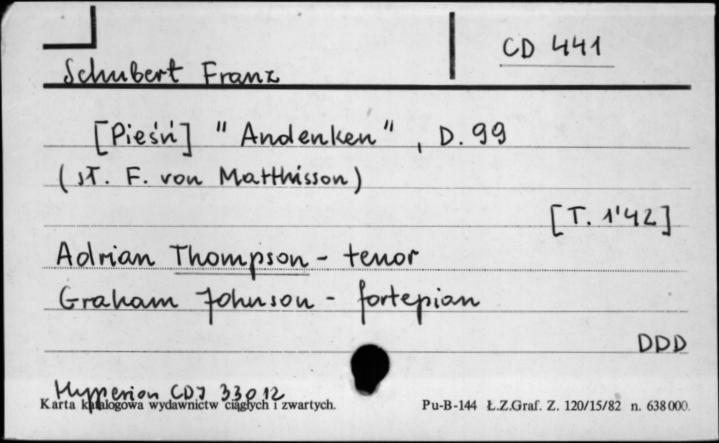 CD 441
Schubert Franz
[Pieśń] "Andenken", D. 99
(sł. F. von Matthisson)
[T. 1'42]
Adrian Thompson - tenor
Graham Johnson - fortepian
DDD
Hyperion CDJ 33012
Karta katalogowa wydawnictw ciągłych i zwartych. Pu-B-144 Ł.Z.Graf. Z. 120/15/82 n. 638000.